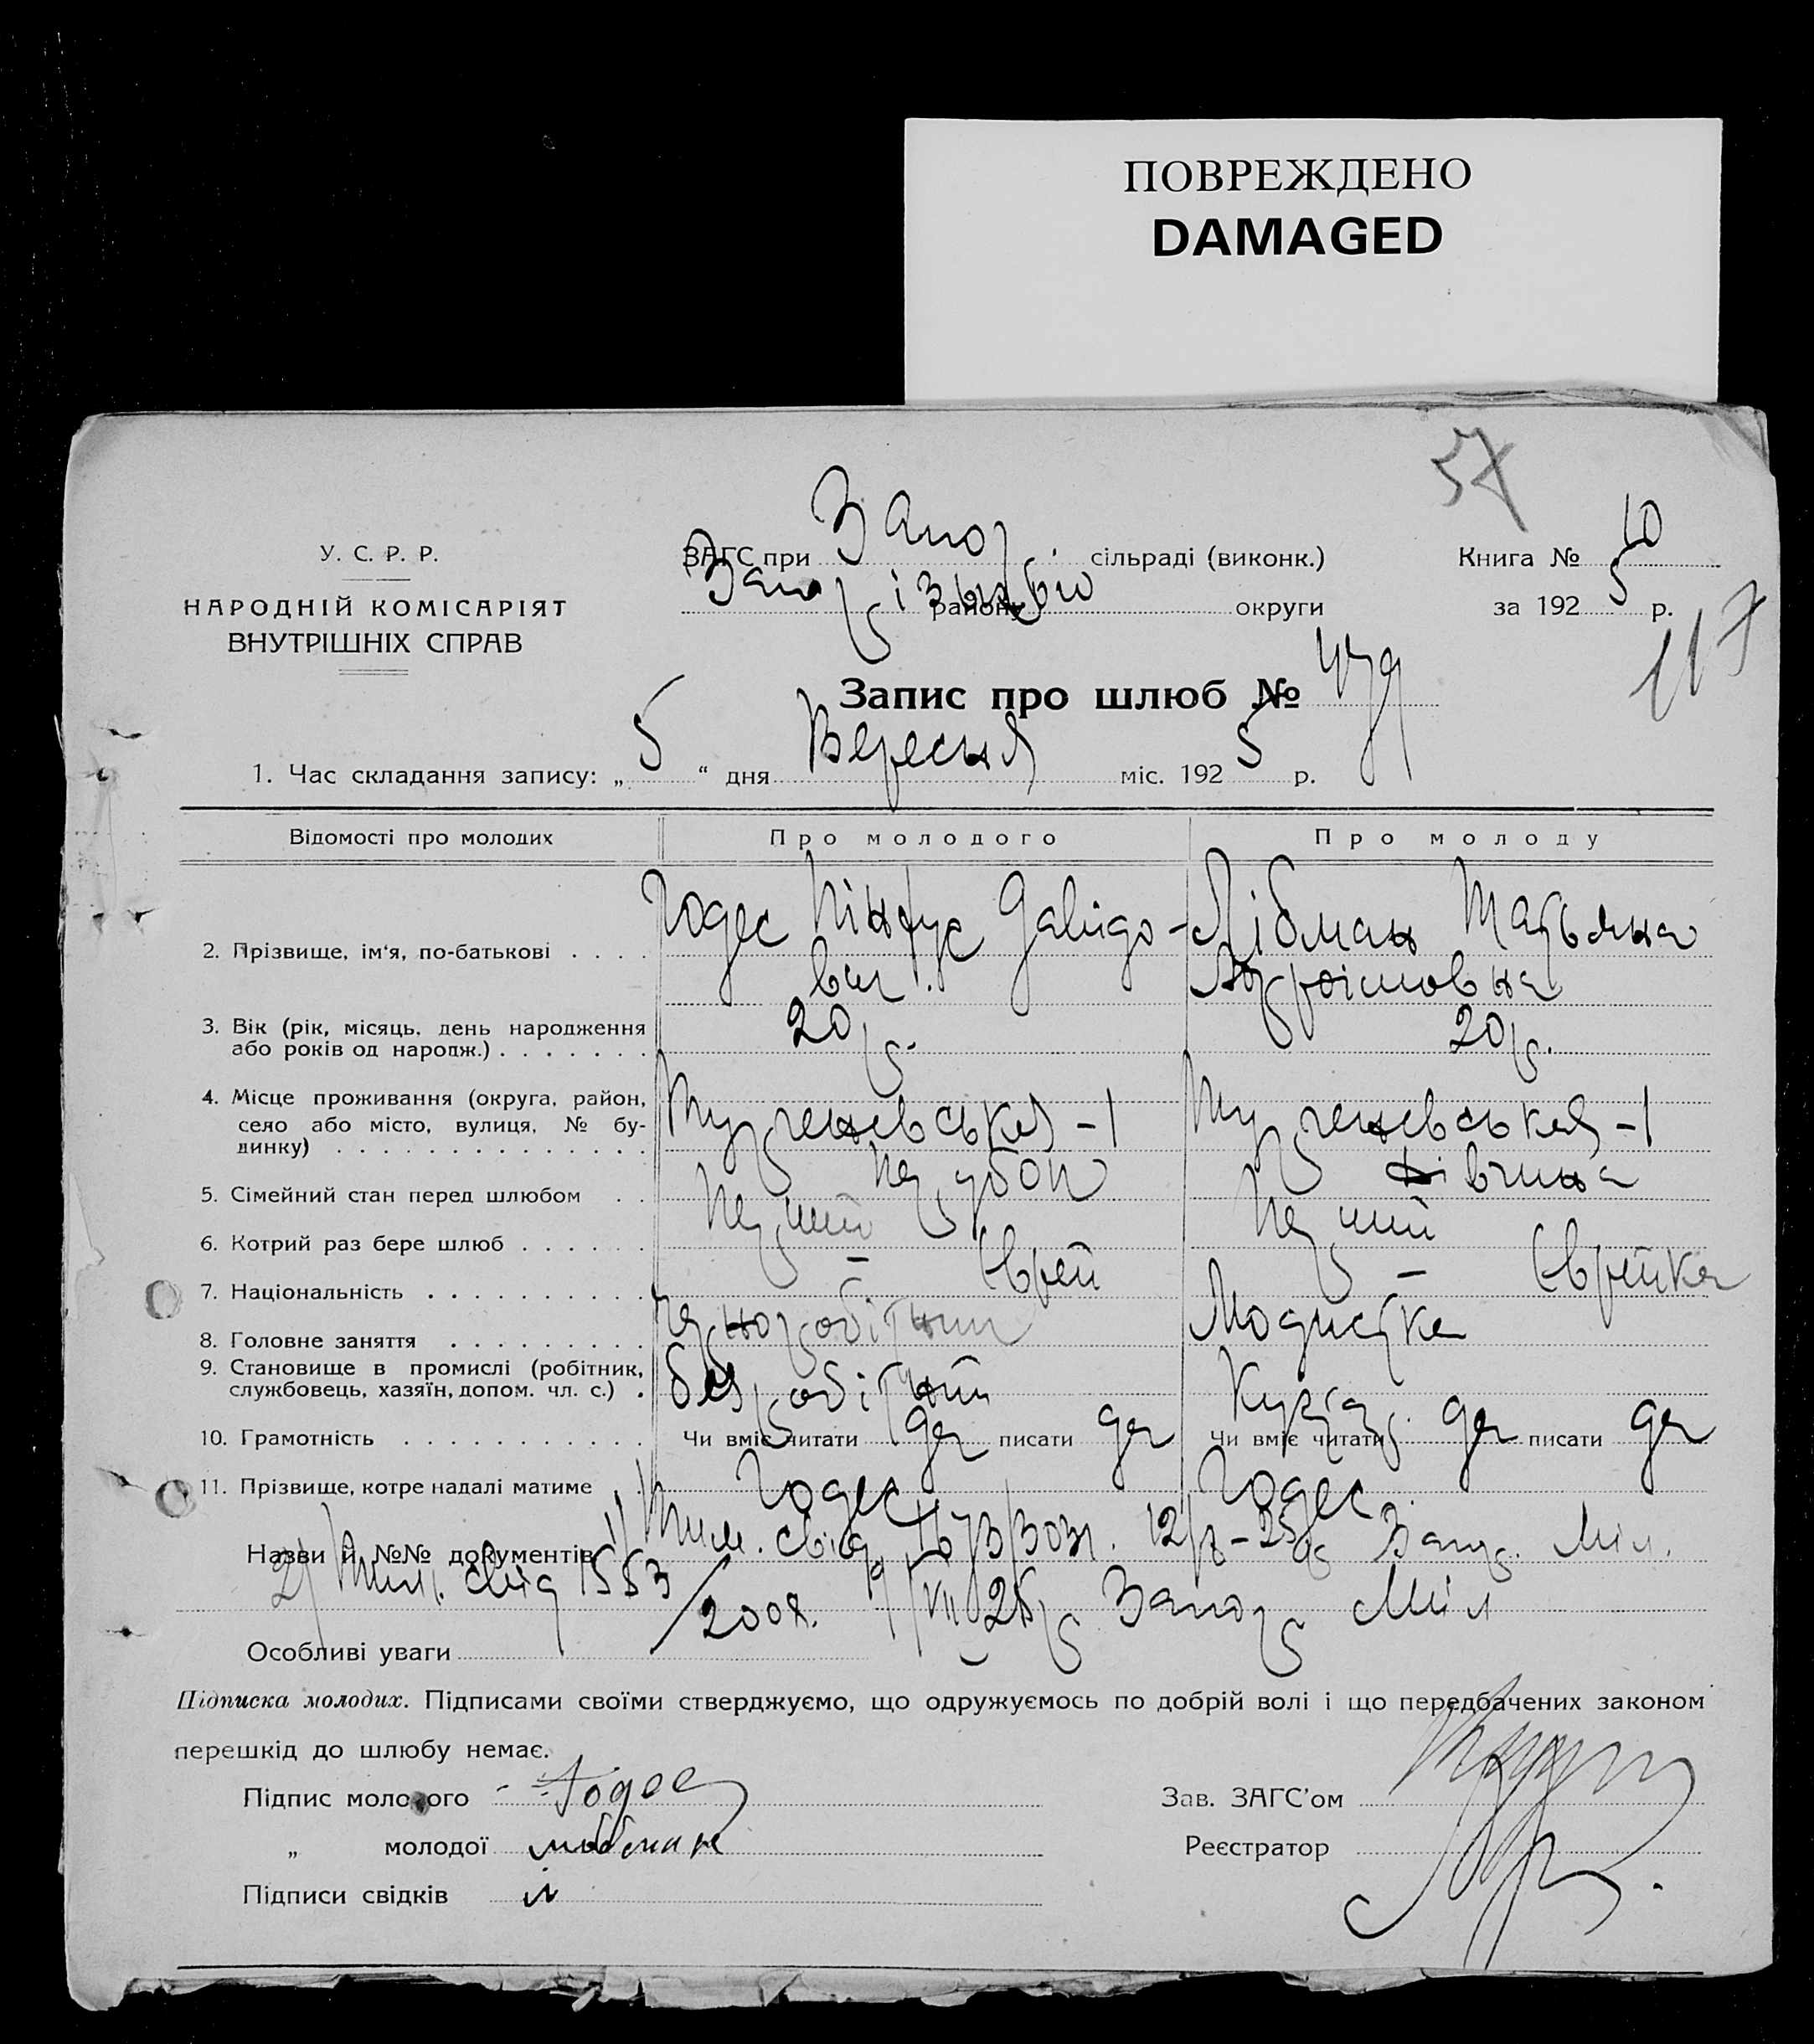 ПОВРЕЖДЕНО
DAMAGED
57
У. С. Р. Р.
НАРОДНІЙ КОМІСАРІЯТ
ВНУТРІШНІХ СПРАВ
ЗАГС при Запор. сільраді (виконк.)
району округи
Книга № 10
за 192 5 р.
117
Запис про шлюб №
1. Час складання запису: „ 5 “ дня Вересня міс. 192 5 р.
Відомості про молодих Про молодого Про молоду
2. Прізвище, ім‘я, по-батькові . . . . Годес Пінхус Давидо- Лібман Татьяна
вич.
3. Вік (рік, місяць, день народження або років од народж.) . . . . . . . 20 р. 20 р.
4. Місце проживання (округа, район, село або місто, вулиця, № будинку) . . . . . . Тургеневська - 1 Тургеневська - 1
5. Сімейний стан перед шлюбом . . парубок дівчина
6. Котрий раз бере шлюб . . . . . . перший перший
7. Національність . . . . . . . . . . – Єврей – Єврейка
8. Головне заняття . . . . . . . . . чорноробітник Модистка
9. Становище в промислі (робітник, службовець, хазяїн, допом. чл. с.) . безробітний Кустар.
10. Грамотність . . . . . . . . . . . Чи вміє читати да писати да Чи вміє читати да писати да
11. Прізвище, котре надалі матиме . Годес Годес.
Назви й №№ документів 1/ Тим. свід. 12/ Запор. Міл.
2/ Тим. свід 1553/2008. Запор Міл
Особливі уваги
Підписка молодих. Підписами своїми стверджуємо, що одружуємось по добрій волі і що передбачених законом
перешкід до шлюбу немає.
Підпис молодого Годес
Зав. ЗАГС’ом
„ молодої Либман
Реєстратор
Підписи свідків